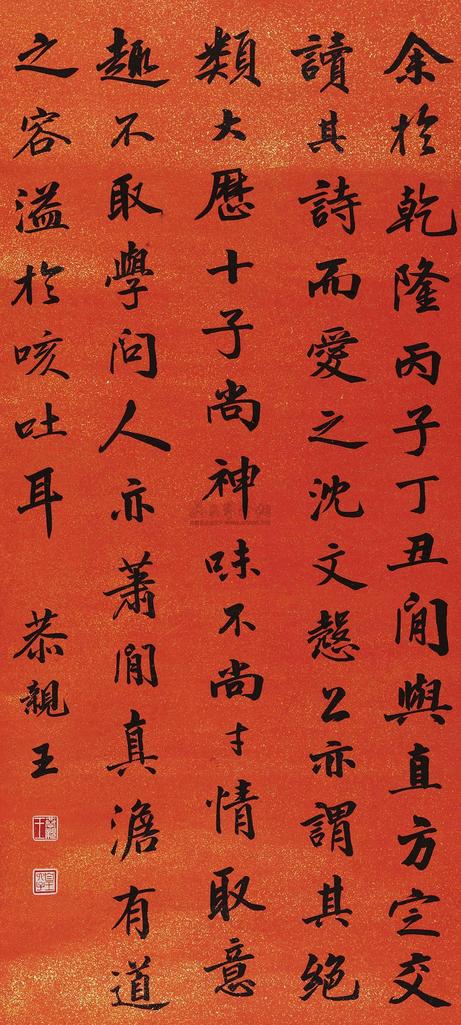 余於乾隆丙子丁丑間與直方定交
讀其詩而愛之沈文慤公亦謂其絕
類大曆十子尚神味不尚才情取意
趣不取學問人亦蕭閒真澹有道
之容溢於咳吐耳
恭親王